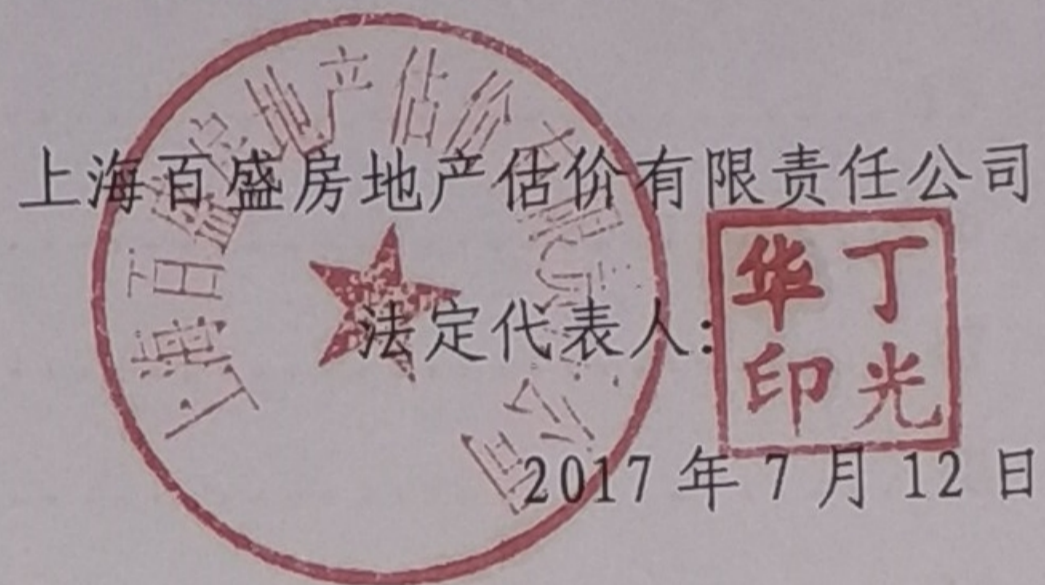 上海百盛房地产估价有限责任公司
上海百盛房地产估价有限责任公司
法定代表人:
丁光华印
2017年7月12日